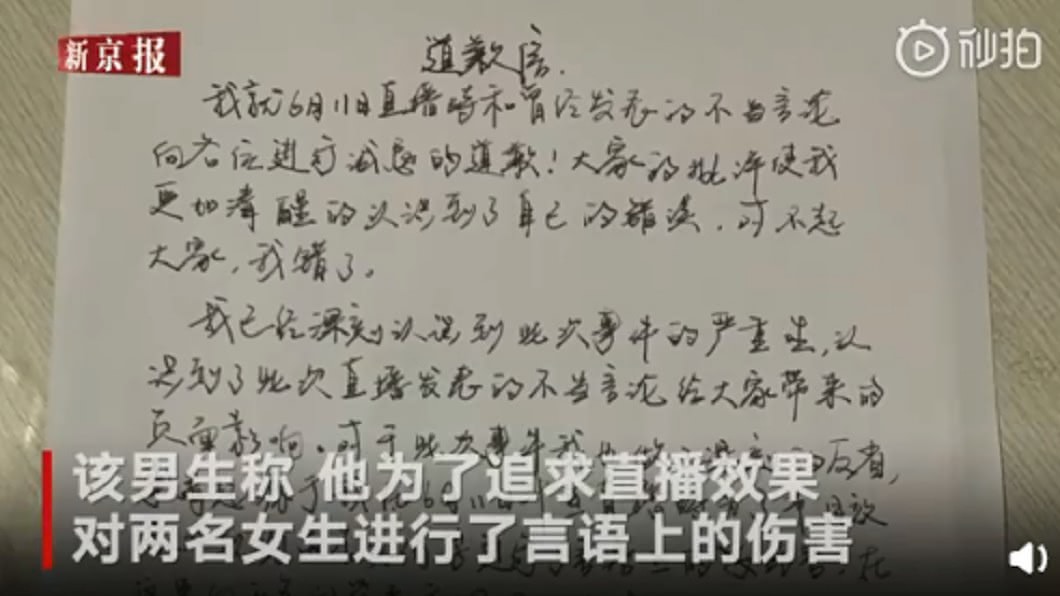 新京报
秒拍
道歉信.
我就6月11日直播时和曾经发表的不当言论
向各位进行诚恳的道歉!大家的批评使我
更加清醒的认识到了自己的错误,对不起
大家,我错了。
我已经深刻认识到此次事件的严重性,认
识到了此次直播发表的不当言论给大家带来的
负面影响。对于此次事件我 反省,
该男生称 他为了追求直播效果
对两名女生进行了言语上的伤害